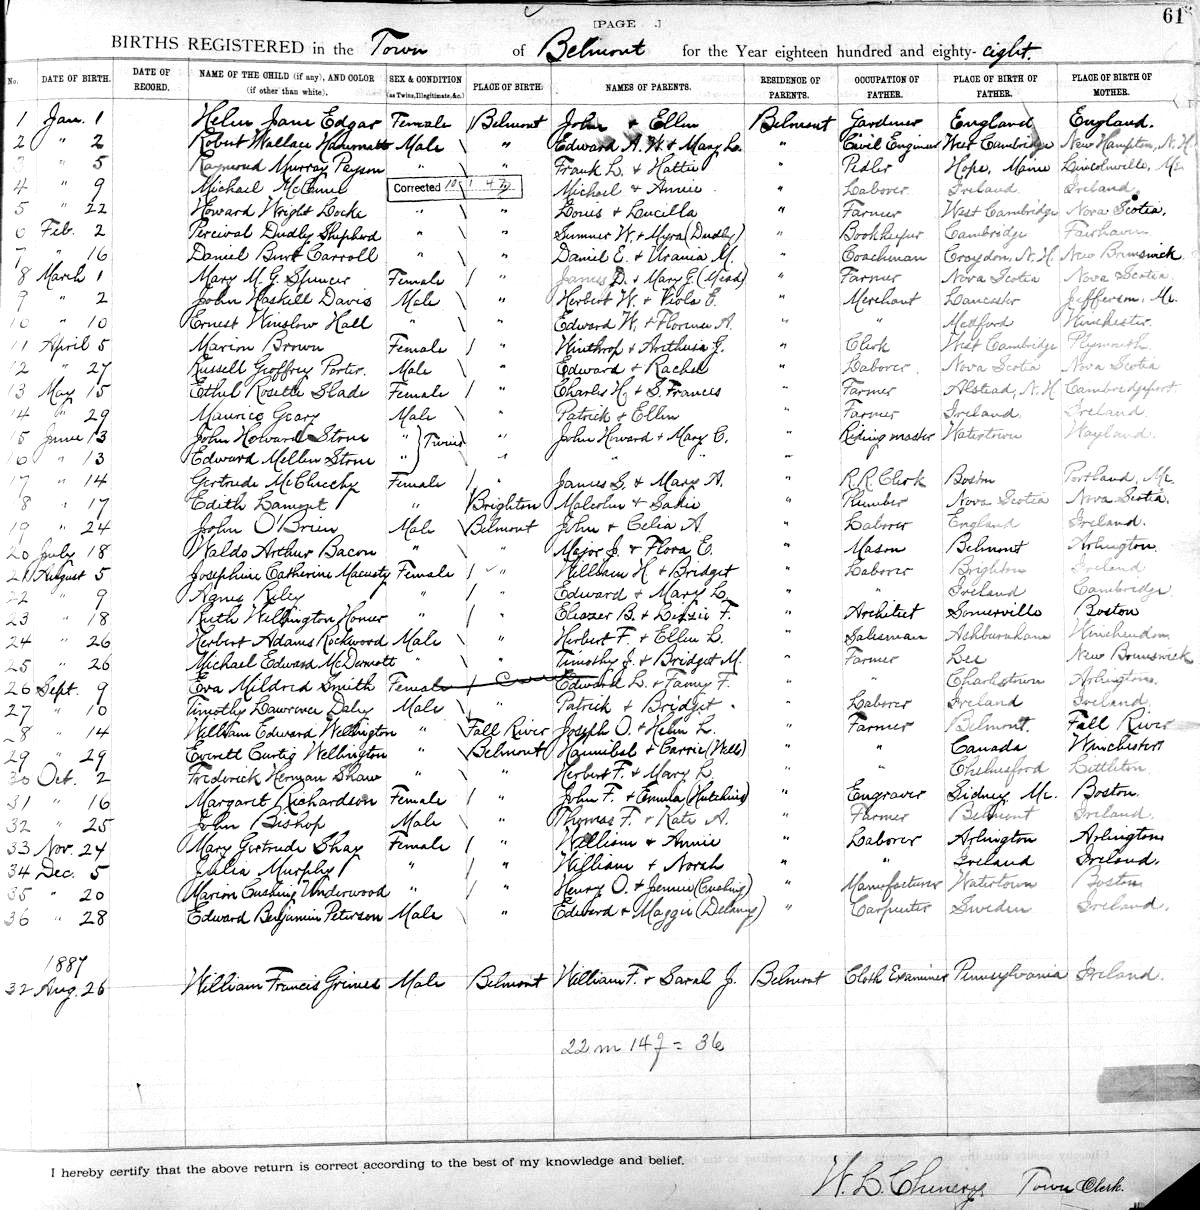 [PAGE .] 61
BIRTHS REGISTERED in the Town of Belmont for the Year eighteen hundred and eighty-eight.
No. DATE OF BIRTH. DATE OF RECORD. NAME OF THE CHILD (if any), AND COLOR (if other than white). SEX & CONDITION (as Twins, Illegitimate, &c.) PLACE OF BIRTH. NAMES OF PARENTS. RESIDENCE OF PARENTS. OCCUPATION OF FATHER. PLACE OF BIRTH OF FATHER. PLACE OF BIRTH OF MOTHER.
1 Jan. 1 Helen Jane Edgar Female Belmont John & Ellen Belmont Gardener England England.
2 " 2 Robert Wallace Male " Edward A. W. & Mary L. " Civil Engineer West Cambridge New Hampton, N. H.
3 " 5 Raymond Murray Payson " " Frank L. & Hattie " Pedler Hope, Maine Lincolnville, Me.
4 " 9 Michael Corrected 10 1 47 Michael & Annie " Laborer Ireland Ireland.
5 " 22 Howard Wright Locke " " Louis & Lucilla " Farmer West Cambridge Nova Scotia.
6 Feb. 2 Percival Dudley Shepherd " " Sumner W. & Myra (Dudley) " Bookkeeper Cambridge Fairhaven
7 " 16 Daniel Burt Carroll " " Daniel E. & Urania M. " Coachman Croydon, N. H. New Brunswick
8 March 1 Mary M. G. Spencer Female " James D. & Mary G. (Mead) " Farmer Nova Scotia Nova Scotia
9 " 2 John Haskell Davis Male " Herbert W. & Viola E. " Merchant Lancaster Jefferson, Me.
10 " 10 Ernest Winslow Hall " " Edward W. & Florence A. " " Medford Winchester.
11 April 5 Marion Brown Female " Winthrop & Arethusa G. " Clerk West Cambridge Plymouth.
12 " 27 Russell Geoffrey Porter. Male " Edward & Rachel " Laborer. Nova Scotia Nova Scotia
13 May 15 Ethel Rosella Slade Female " Charles H. & S. Frances " Farmer Alstead, N. H. Cambridgeport
14 " 29 Maurice Geary Male " Patrick & Ellen " Farmer Ireland. Ireland
15 June 13 John Howard Stone " } Twins " John Howard & Mary C. " Riding master Watertown Wayland.
16 " 13 Edward Mellen Stone " " " "
17 " 14 Gertrude Female " James G. & Mary A. " R. R. Clerk Boston Portland, Me.
18 " 17 Edith Lamont " Brighton Malcolm & Sadie " Plumber Nova Scotia Nova Scotia.
19 " 24 John O'Brien Male Belmont John & Celia A " Laborer England Ireland.
20 July 18 Waldo Arthur Bacon " " Major J. & Flora E. " Mason Belmont Arlington.
21 August 5 Josephine Catherine Female " William H. & Bridget " Laborer Brighton Ireland
22 " 9 Agnes Riley " " Edward & Mary L. " " Ireland Cambridge
23 " 18 Ruth Wellington Homer " " Eleazer B. & Lizzie F. " Architect Somerville Boston
24 " 26 Herbert Adams Rockwood Male " Herbert F. & Ellen L. " Salesman Ashburnham Winchendon
25 " 26 Michael Edward McDermott " " Timothy J. & Bridget M. " Farmer Lee New Brunswick
26 Sept. 9 Eva Mildred Smith Female " Edward L. & Fanny F. " " Charlestown Arlington.
27 " 10 Timothy Lawrence Daley Male " Patrick & Bridget. " Laborer Ireland Ireland.
28 " 14 William Edward Wellington " Fall River Joseph O. & Helen L. " Farmer Belmont. Fall River
29 " 29 Everett Curtis Wellington " Belmont Hannibal & Carrie (Wells) " " Canada Winchester
30 Oct. 2 Frederick Herman Shaw " " Herbert F. & Mary L. " " Chelmsford Littleton
31 " 16 Margaret Richardson Female " John F. & Emma (Hutchins) " Engraver Sidney, Me. Boston.
32 " 25 John Bishop Male " Thomas F. & Kate A. " Farmer Belmont Ireland
33 Nov. 24 Mary Gertrude Shay Female " William & Annie " Laborer Arlington Arlington
34 Dec. 5 Julia Murphy " " William & Norah " " Ireland Ireland.
35 " 20 Marion Cushing Underwood " " Henry O. & Jennie (Cushing) " Manufacturer Watertown Boston
36 " 28 Edward Benjamin Peterson Male " Edward & Maggie (Delaney) " Carpenter Sweden Ireland.
1887
32 Aug. 26 William Francis Grimes Male Belmont William F. & Sarah J. Belmont Cloth Examiner Pennsylvania Ireland.
22 m 14 f = 36
I hereby certify that the above return is correct according to the best of my knowledge and belief.
W. L. Chenery Town Clerk.